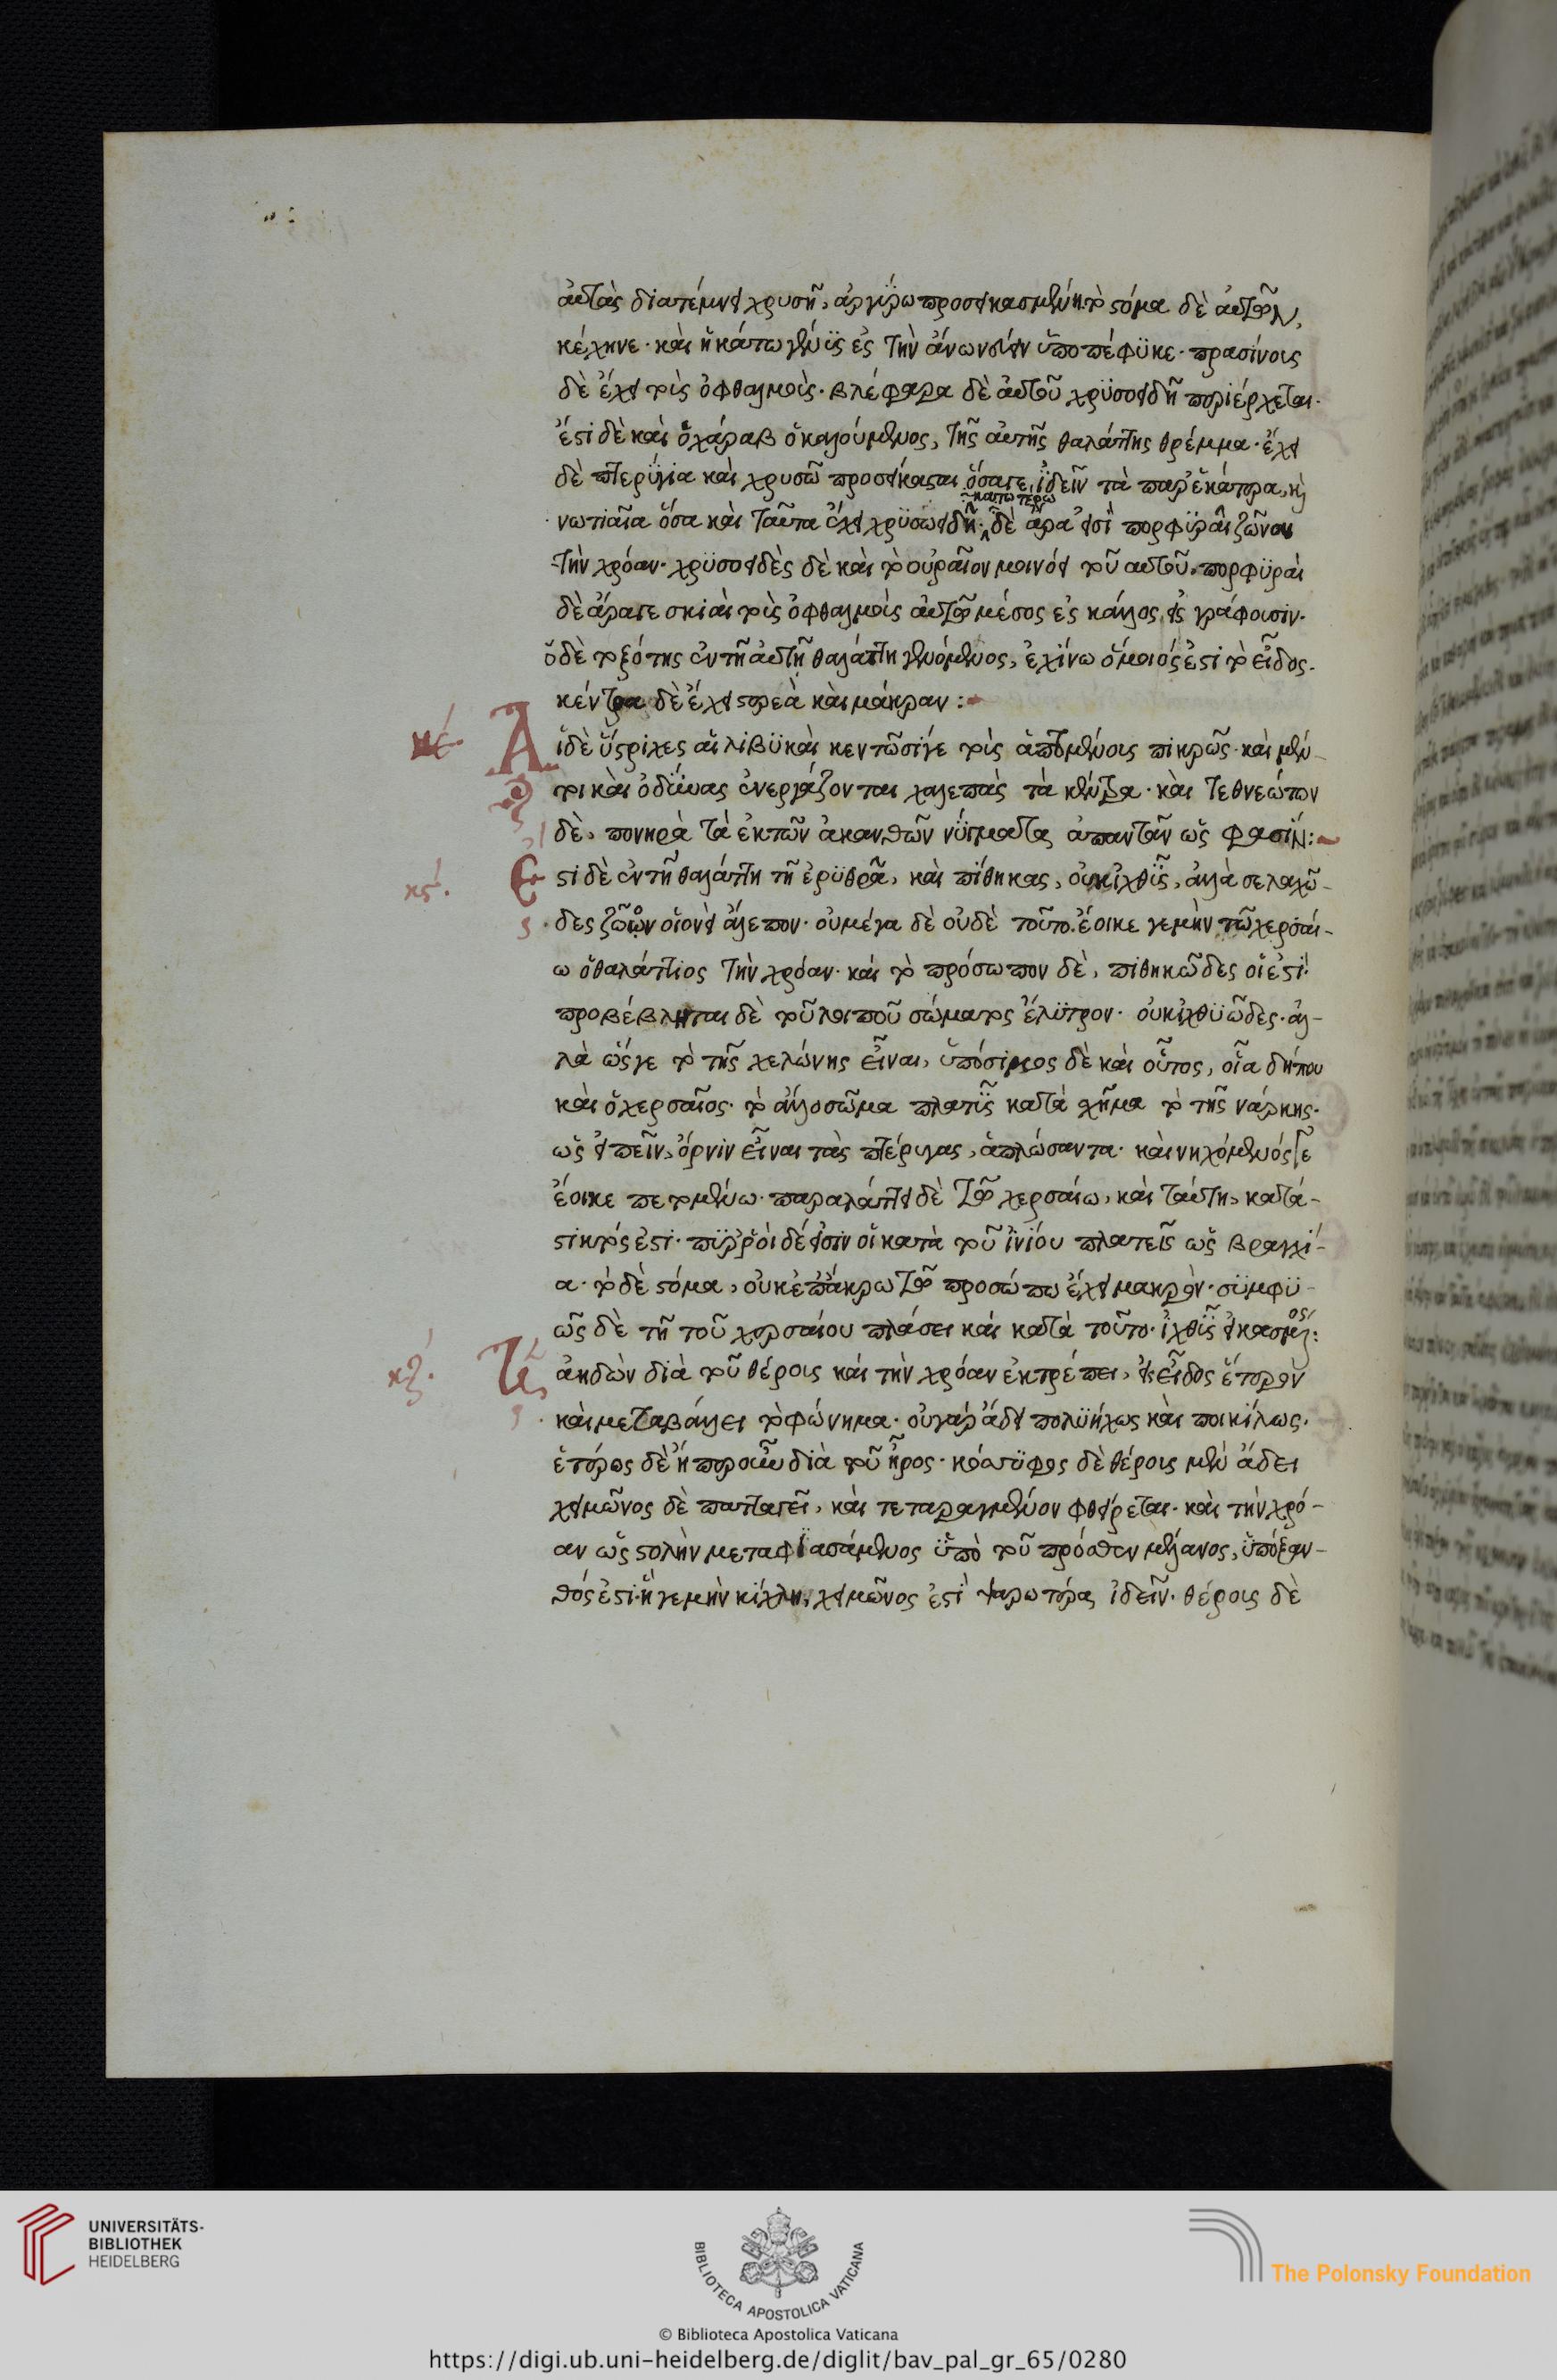 αὐτὰς διατέμνει χρυσῆ, ἀργύρω προσεικασμένη. τὸ στόμα δὲ αὐτῶν,
κέχηνε· καὶ ἡ κάτω γένυϊς ἐς τὴν ἄνω νεύειν ὑποπέφϋκε· πρασίνοις
δὲ ἔχει τοὺς ὀφθαλμοὺς· βλέφαρα δὲ αὐτοῦ χρϋσοειδῆ περιέρχεται·
ἔστι δὲ καὶ ὁ χάραβ ὁ καλούμενος, τῆς αὐτῆς θαλάττης θρέμμα· ἔχει
δὲ πτερύγια καὶ χρυσῶ προσείκασται ὅσατε ἰδεῖν τὰ παρ' ἑκάτερα, καὶ
νωτιαῖα ὅσα καὶ ταῦτα ἔχει χρϋσωειδῆ· κατωτέρω δὲ ἄρα εἰσὶ πορφϋραῖ ζῶναι
τὴν χρόαν· χρϋσοειδὲς δὲ καὶ τὸ οὐραῖον μοινόει τοῦ αὐτοῦ. πορφϋραὶ
δὲ ἄρατε σκιαὶ τοὺς ὀφθαλμοὺς αὐτῶ μέσος ἐς κάλλος εἰς γράφουσιν·
ὁ δὲ τοξότης ἐν τῆ αὐτῆ θαλάττη γενόμενος, ἐχίνω ὅμοιός ἐστι τὸ εἶδος·
κέντρα δὲ ἔχει στερεὰ καὶ μάκραν :
κέ· Αἱ δὲ ὕστριχες αἱ λιβϋκαὶ κεντῶσίγε τοὺς ἁπτομένους πικρῶς· καὶ μέν-
τοι καὶ ὀδύνας ἐνεργάζονται χαλεπὰς τὰ κέντρα· καὶ τεθνεώτων
δὲ, πονηρὰ τὰ ἐκ τῶν ἀκανθῶν νύγματα ἀπαντᾶν ὥς φασίν:
κϛ΄· Ἔστι δὲ ἐν τῆ θαλάττη τῆ ἐρϋθρᾶ, καὶ πίθηκας, οὐκ ἰχθῦς, ἀλλὰ σελαχῶ-
δες ζῶων οἱονεὶ ἄλεπον· οὐ μέγα δὲ οὐδὲ τοῦτο. ἔοικε γε μὴν τῶ χερσαί-
ω ὁ θαλάττιος τὴν χρόαν· καὶ τὸ πρόσωπον δὲ, πιθηκῶδες οἵ ἐστί·
προβέβληται δὲ τοῦ λοιποῦ σώματος ἔλϋτρον· οὐκ ἰχθϋῶδες· ἀλ-
λὰ ὥς γε τὸ τῆς χελώνης εἶναι, ὑπόσιμος δὲ καὶ οὗτος, οἷα δήπου
καὶ ὁ χερσαῖος· τὸ ἄλλο σῶμα πλατῢς κατὰ σχῆμα τὸ τῆς νάρκης·
ὡς εἰπεῖν, ὄρνιν εἶναι τὰς πτέρυγας, ἁπλώσαντα· καὶ νηχόμενός γε
ἔοικε πετομένω· παραλάττει δὲ τῶ χερσαίω, καὶ ταύτη, κατά-
στικτός ἐστι· πϋῤῥοὶ δέ εἰσιν οἱ κατὰ τοῦ ἰνίου πλατεῖς ὡς βραγχί-
α· τὸ δὲ στόμα, οὐκ ἐπ' ἄκρω τῶ προσώπω ἔχει μακρὸν· σϋμφϋ-
ῶς δὲ τῆ τοῦ χερσαίου πλάσει καὶ κατὰ τοῦτο· ἰχθῢς εἰκασμένος:
κζ΄· Ἡ ἀηδὼν διὰ τοῦ θέροις καὶ τὴν χρόαν ἐκτρέπει, εἰς εἶδος ἕτερον
καὶ μεταβάλλει τὸ φώνημα· οὐ γὰρ ἄδει πολϋήχως καὶ ποικίλως·
ἑτέρως δὲ ἤπερ οὖν διὰ τοῦ ἦρος· κόσσϋφος δὲ θέροις μὲν ἄδει
χειμῶνος δὲ παταγεῖ, καὶ τεταραγμένον φθέγγεται· καὶ τὴν χρό-
αν ὡς στολὴν μεταφϊασάμενος ὑπὸ τοῦ πρόσθεν μέλανος, ὑπόξαν-
θός ἐστι· ἡ γε μὴν κίχλη, χειμῶνος ἐστὶ ψαρωτέρας ἰδεῖν· θέροις δὲ
UNIVERSITÄTS-
BIBLIOTHEK
HEIDELBERG
BIBLIOTECA APOSTOLICA VATICANA
The Polonsky Foundation
© Biblioteca Apostolica Vaticana
https://digi.ub.uni-heidelberg.de/diglit/bav_pal_gr_65/0280